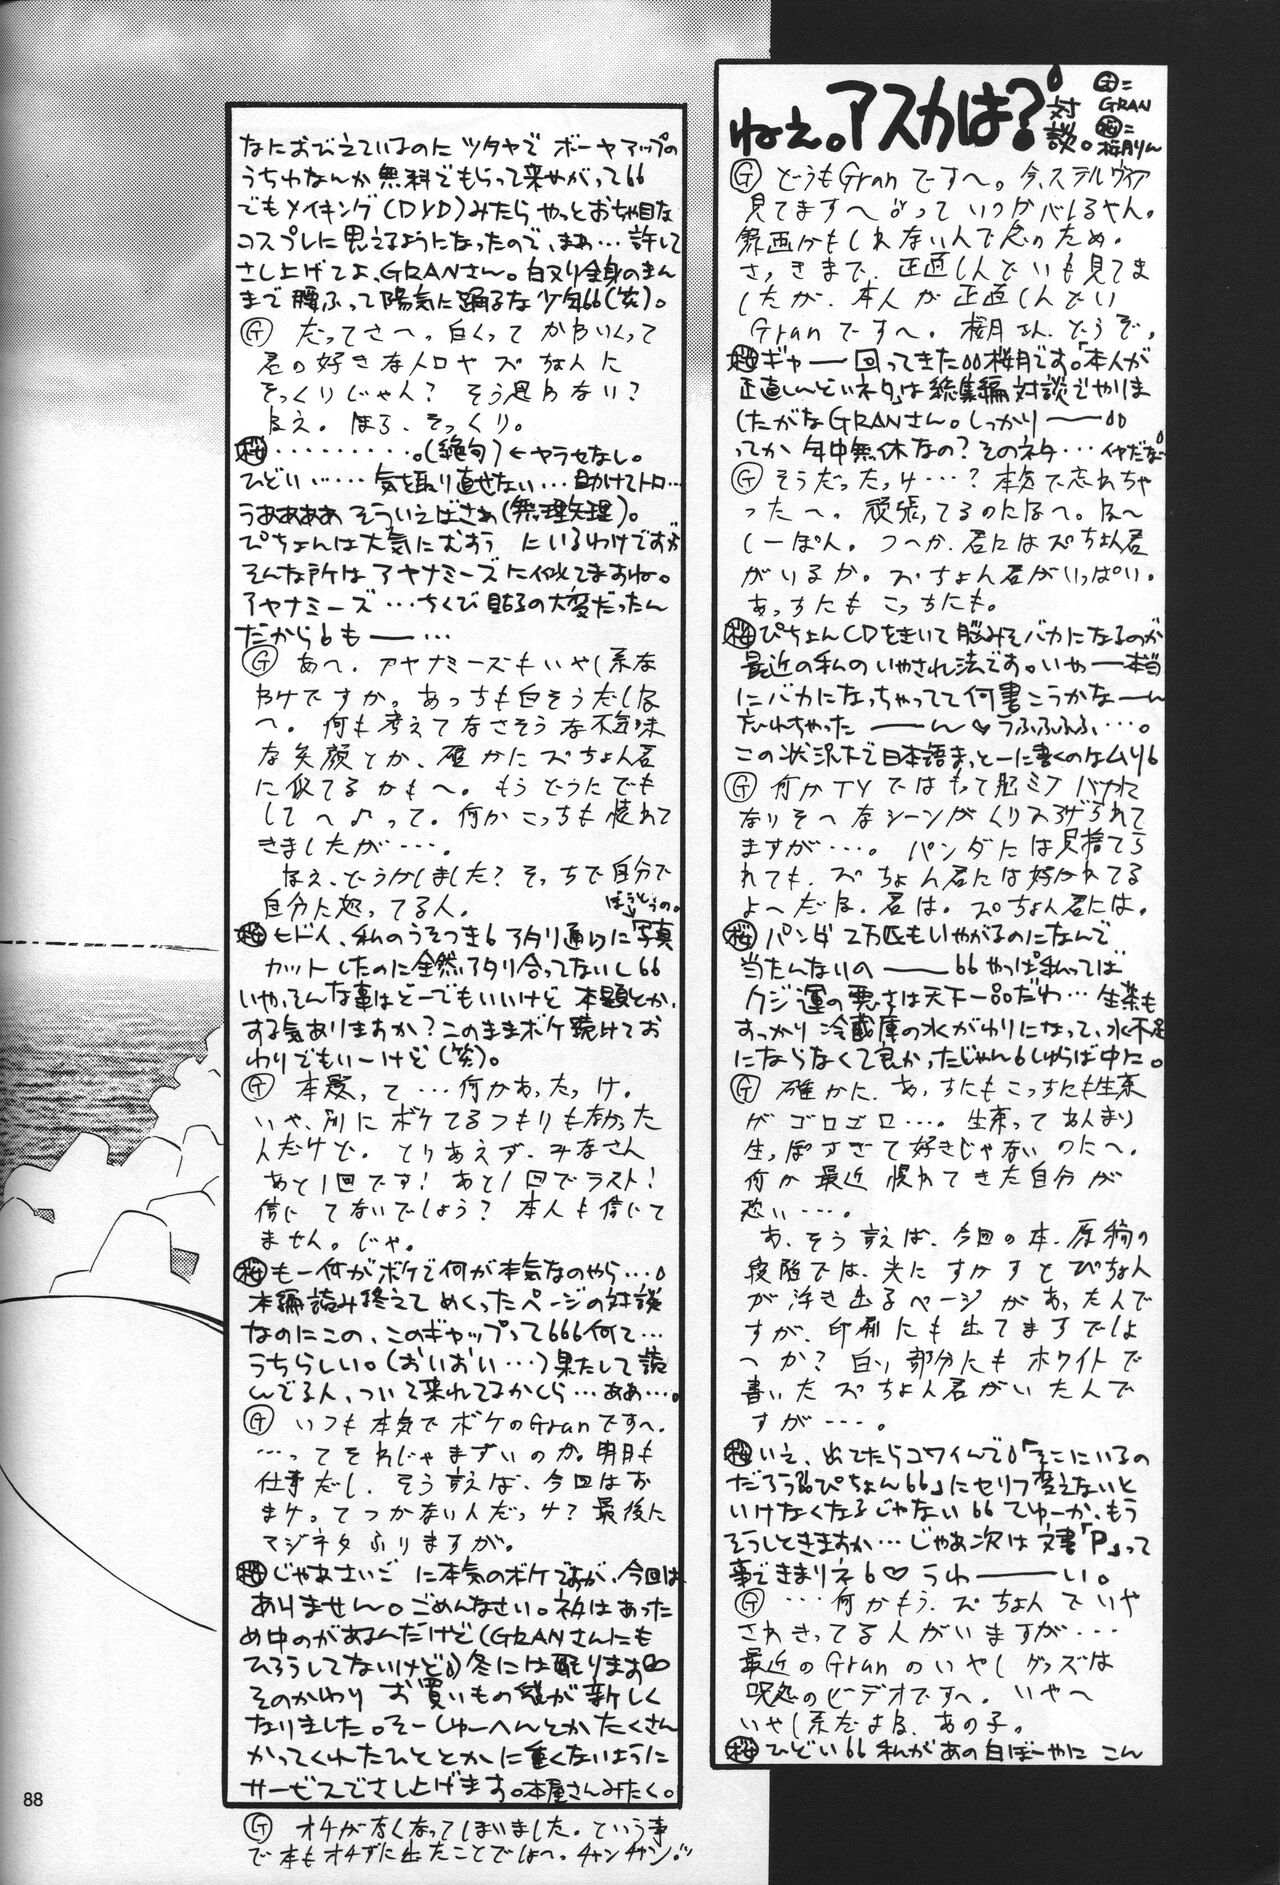 ねえ。アスカは?
対談。
G=
GRAN
桜=
桜月りん
G どうもGranですへ。今、ステルヴィア
見てますへ。って いつかバレるやん。
録画かもしれないんで念のため。
さっきまで、正直しんどいも見てま
したが、本人が正直しんどい
Granですへ。桜月さん、どうぞ。
桜 ギャー 回ってきた 桜月です。「本人が
正直しんどいネタ」は総集編対談でやりま
したがなGRANさん。しっかりーー
ってか 年中無休なの?そのネタ…イヤだなー
G そうだったっけ…?本気で忘れちゃ
ったへ。頑張ってるのになへ。な〜
しーぽん。つへか、君にはぴちょん君
がいるか。ぴちょん君がいっぱい。
あっちにも こっちにも。
桜 ぴちょんCDをきいて脳みそバカになるのが
最近の私のいやされ法です。いやー本当
にバカになっちゃってて何書こうかなーん
忘れちゃったーーん♡うふふふふ…。
この状況下で日本語まっとーに書くのなムリ
G 何かTVではもって脳ミソバカに
なりそへなシーンがくりひろげられて
ますが…。パンダには見捨てら
れても、ぴちょん君には好かれてる
よへだな、君は。ぴちょん君には。
桜 パンダ 2万匹もいやがるのになんで
当たんないのーー やっぱまんってば
クジ運の悪さは天下一品だわ…生茶も
すっかり冷蔵庫の水がわりになって、水不足
にならなくて良かったじゃん しゅらば中に。
G 確かに、あっすにもこっすにも生茶
がゴロゴロ…。生茶ってあんまり
生っぽすぎて好きじゃないのにへ。
何か最近慣れてきた自分が
恐い…。
あ、そう言えば、今回の本、原稿の
段階では、光にすかすとぴちょん
が浮き出るページがあったんで
すが、印刷にも出てますでしょ
へか?白い部分にもホワイトで
書いたぴちょん君がいたんで
すが…。
桜 いえ、出てたらコワイんで「そこにいるの
だろう ぴちょん」にセリフ変えないと
いけなくなるじゃない てゆーか、もう
そうしときますか…じゃあ次は文書「P」って
事できまりネ♡うわーーい。
G …何かもう、ぴちょんでいや
されきってる人がいますが…
最近のGranのいやしグッズは
呪怨のビデオですへ。いやへ
いやし系だよな、あの子。
桜 ひどい 私があの白ぼーやに こん
なにおびえているのに ツタヤで ボーヤアップの
うちわなんか 無料でもらって来やがって
でもメイキング(DVD)みたら やっとおちゃ目な
コスプレに思えるようになったので、まぁ…許して
さし上げてよ、GRANさん。白ヌリ全身のまん
まで 腰ふって陽気に踊るな少年(笑)。
G だってさへ。白くってかわいくって
君の好きな人ロヤぴちょんに
そっくりじゃん?そう思わない?
なえ。ほら、そっくり。
桜 ………。(絶句)←ヤラセなし。
ひどい……気を取り直せない…助けてトロ…
うああああ そういえばさぁ(無理矢理)。
ぴちょんは大気にむおう にいるわけですが
そんな所は アヤナミーズに似てますね。
アヤナミーズ…ちくび貼るの大変だったん
だから もーー…
G あへ。アヤナミーズもいやし系な
ワケですか。あっちも白そうだしな
へ。何も考えてなさそうな不気味
な笑顔とか、確かにぴちょん君
に似てるかもへ。もうどうにでも
してへ♪って。何かこっちも慣れて
きましたが…。
なえ、どうかしました?そっちで自分で
自分に怒ってる人。
ぼうとうの。
桜 ヒドイ、私のうそつき アタリ通りに「写真
カットしたのに全然アタリ合ってないし
いや、そんな事はどーでもいいけど 本題とか、
する気ありますか?このままボケ続けてお
わりでもいーけど(笑)。
G 本題って…何かあったっけ。
いや、別にボケてるつもりもなかった
んだけど。とりあえず、みなさん
あと1回です!あと1回でラスト!
信じてないでしょう?本人も信じて
ません。じゃ。
桜 もー何がボケで何が本気なのやら…
本編読み終えて めくったページの対談
なのにこの、このギャップって 何て…
うちらしい。(おいおい…)果たして読
んでる人、ついて来れてるかしら…ああ…。
G いつも本気でボケのGranですへ。
…ってそれじゃまずいのか。明日も
仕事だし、そう言えば、今回はお
まケってつかないんだっケ?最後に
マジネタふりますが。
桜 じゃあさいご に本気のボケですが、今回は
ありません。ごめんなさい。ネタはあった
め中のがあるんだけど(GRANさんにも
ひろうしてないけど)冬には配ります
そのかわり お買いもの袋が新しく
なりました。そーしゅーへんとかたくさん
かってくれたひととかに重くないように
サービスでさし上げます。本屋さんみたく。
G オチがなくなってしまいました。という事
で本もオチずに出たことでしょへ。チャンチャン
88